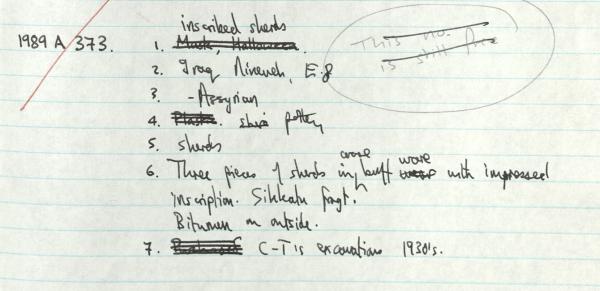 inscribed sherds
1989 A 373. 1. Mask, Halloween.
This no. is still free
2. Iraq Nineveh, E.g
3 - Assyrian
4. Plastic. pottery
5. sherds
6. Three pieces of sherds in coarse buff ware with impressed
inscription. Sikkatu fragt.
Bitumen on outside.
7. C-T's excavations 1930's.